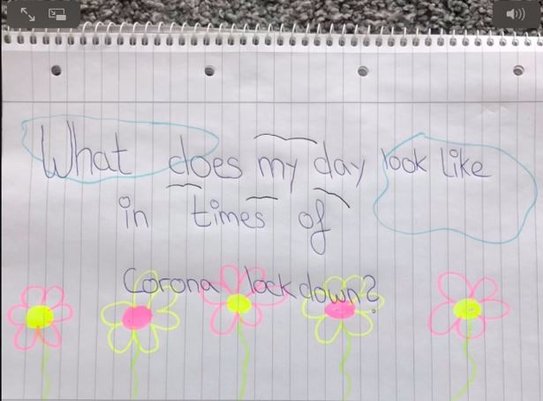 What does my day look like
in times of
Corona lockdown?